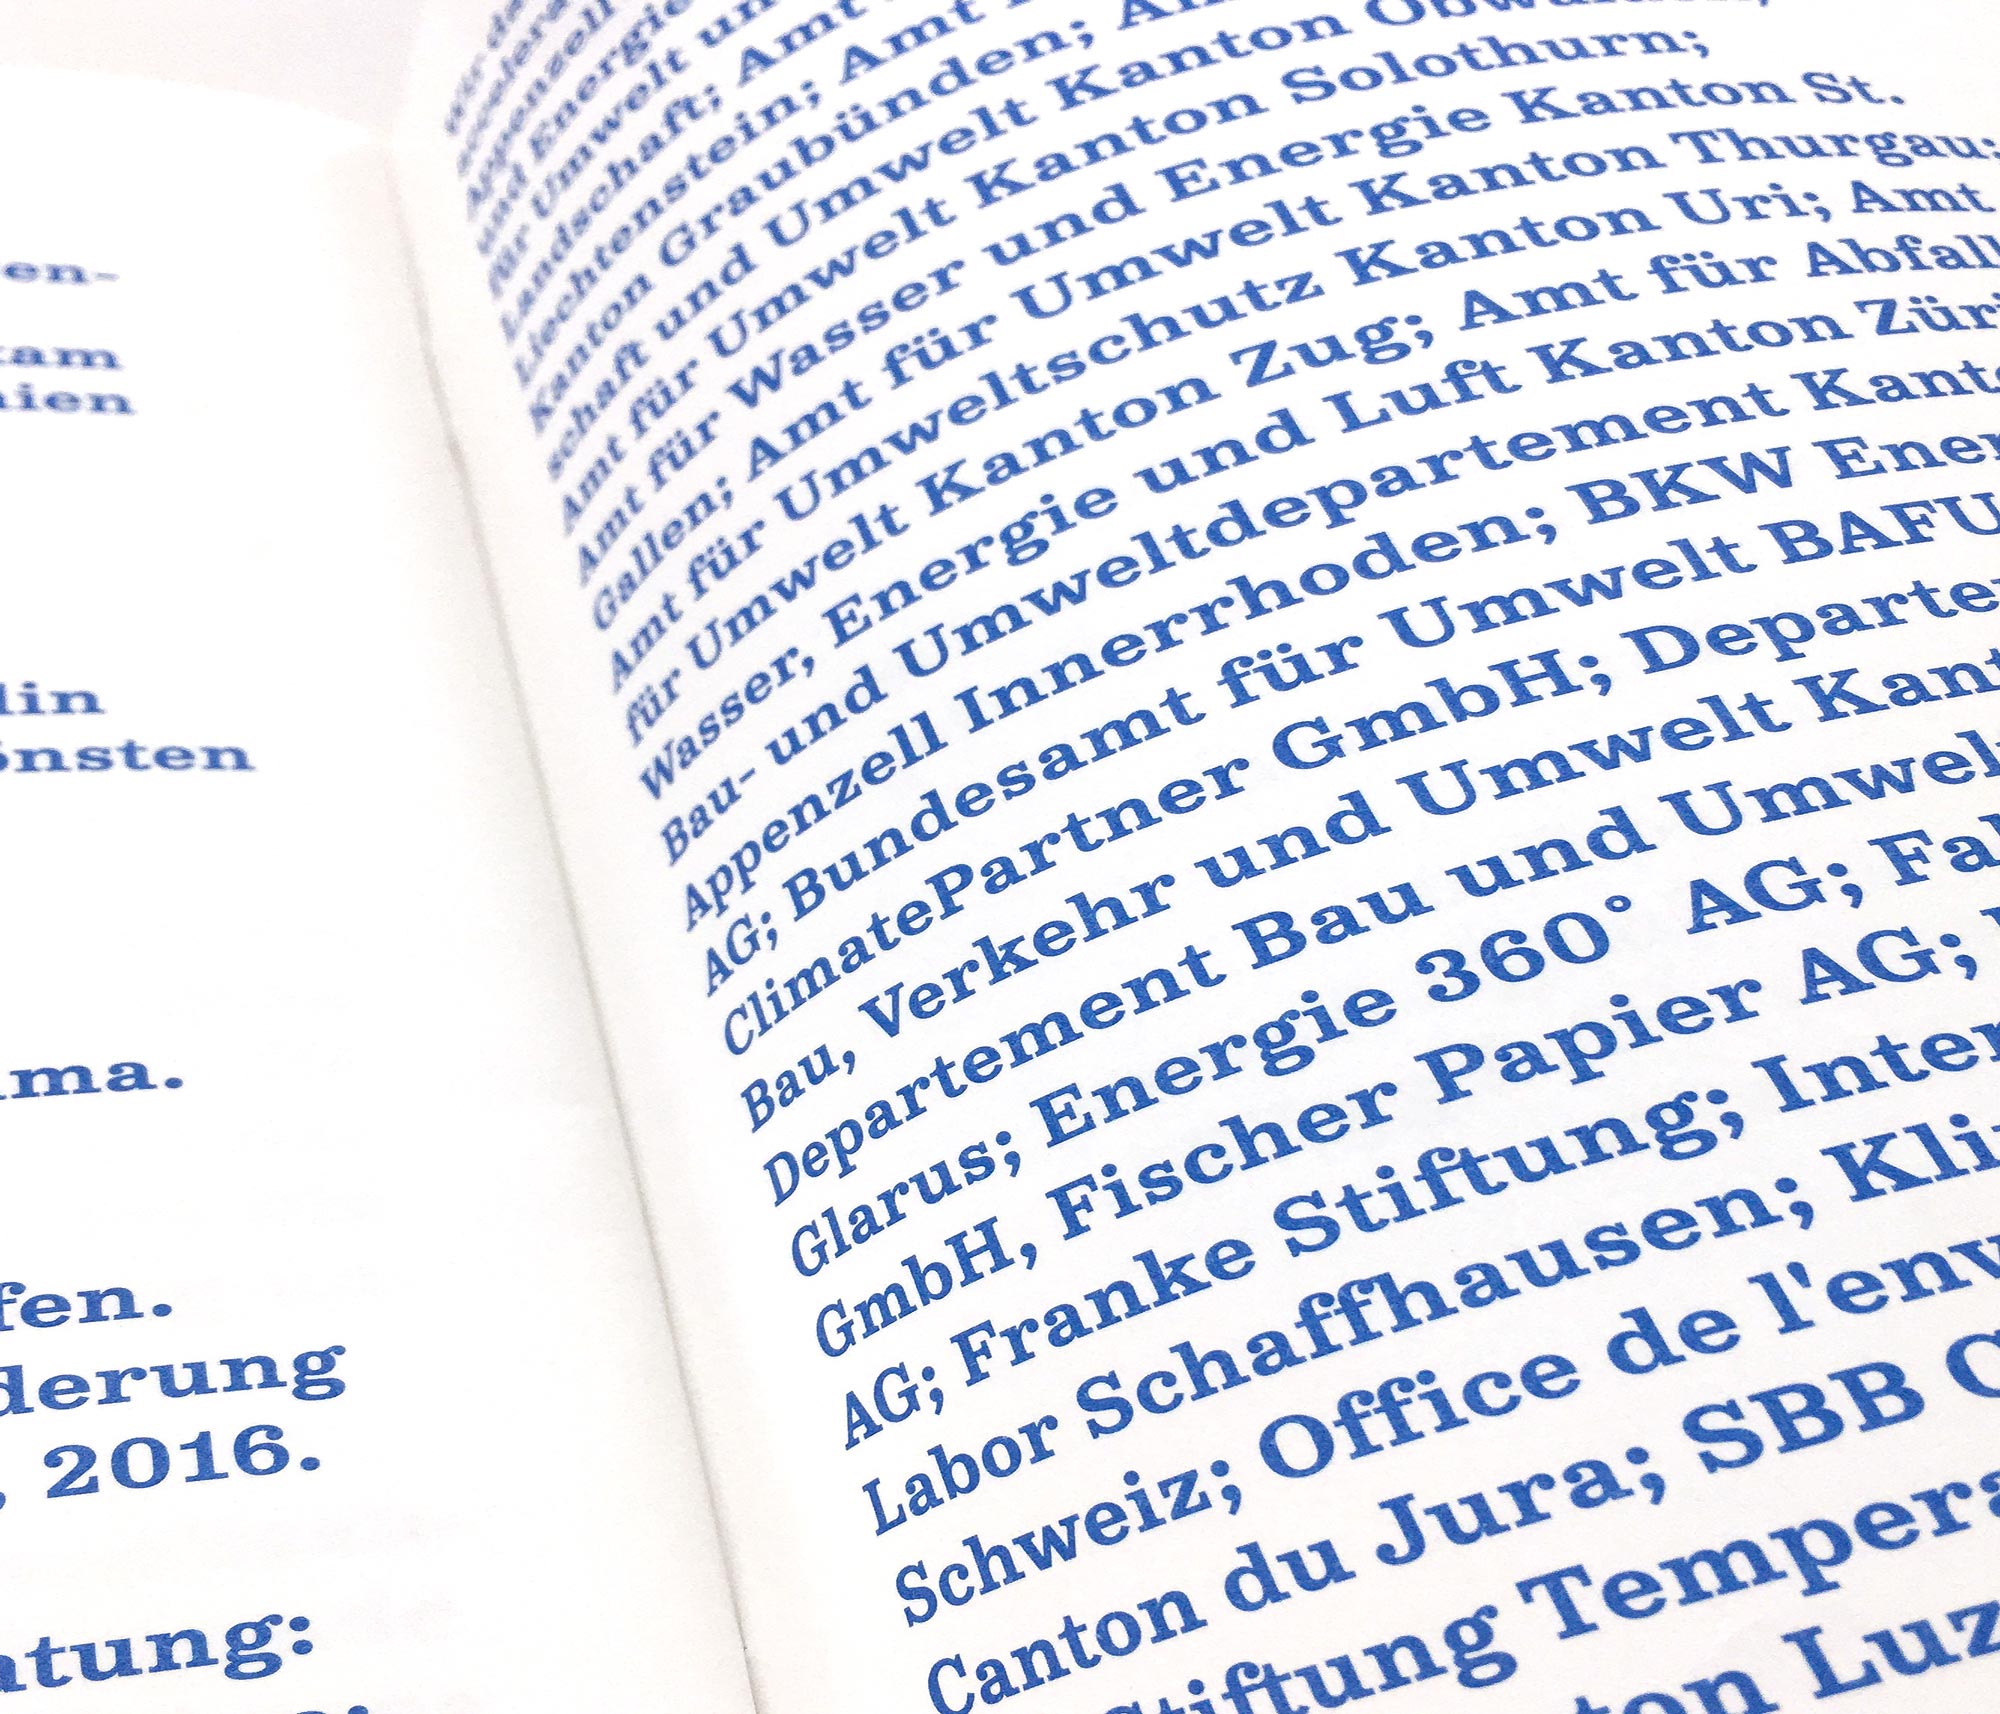 lin
önsten
ma.
fen.
derung
, 2016.
atung:
Appenzell
und Energie
für Umwelt und
Landschaft; Amt
Liechtenstein; Amt
Kanton Graubünden;
schaft und Umwelt Kanton Obwalden;
Amt für Umwelt Kanton Solothurn;
Amt für Wasser und Energie Kanton St.
Gallen; Amt für Umwelt Kanton Thurgau;
Amt für Umweltschutz Kanton Uri; Amt
für Umwelt Kanton Zug; Amt für Abfall
Wasser, Energie und Luft Kanton Züri
Bau- und Umweltdepartement Kanto
Appenzell Innerrhoden; BKW Ener
AG; Bundesamt für Umwelt BAFU
ClimatePartner GmbH; Departe
Bau, Verkehr und Umwelt Kant
Departement Bau und Umwel
Glarus; Energie 360° AG; Fal
GmbH, Fischer Papier AG;
AG; Franke Stiftung; Inter
Labor Schaffhausen; Kli
Schweiz; Office de l'env
Canton du Jura; SBB C
Stiftung Tempera
ton Luz